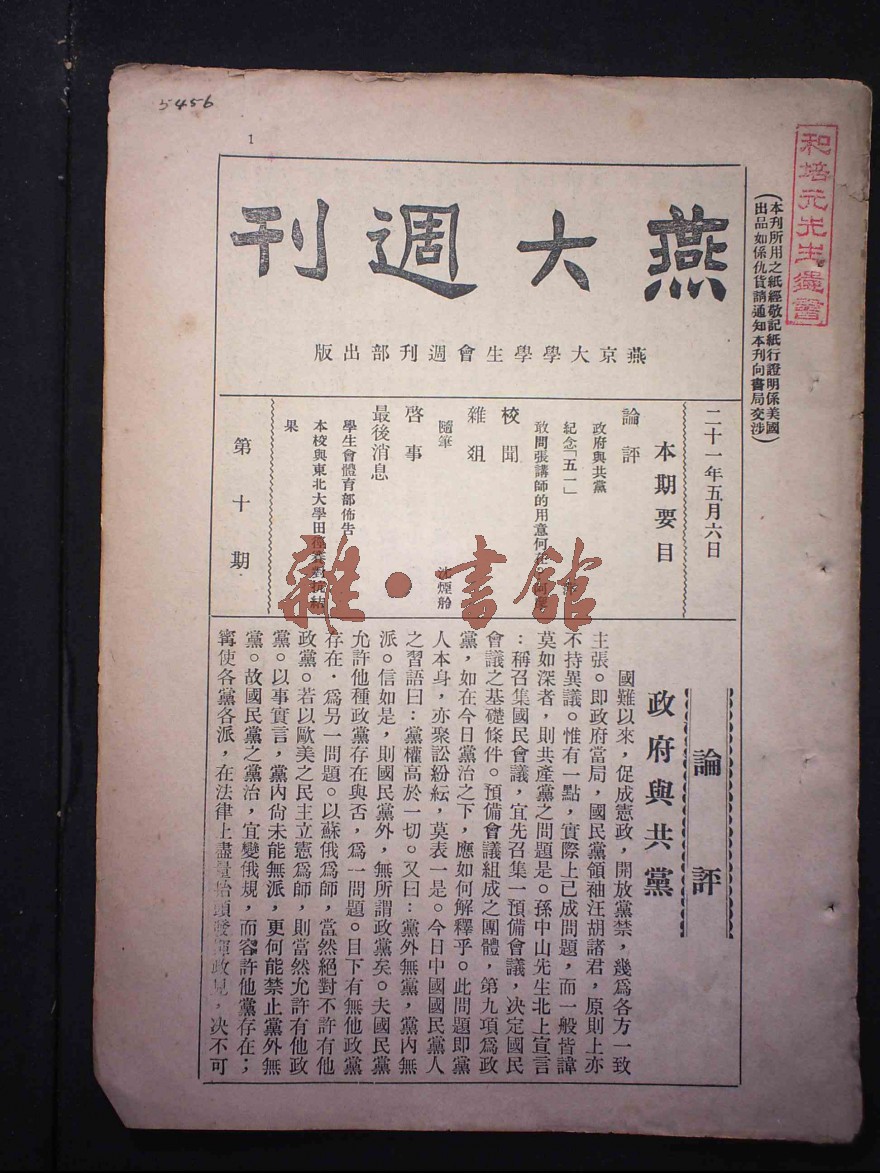 5456
1
和培元先生
(本刊所用之紙經敬記紙行證明係美國
出品如係仇貨請通知本刊向書局交涉)
燕大週刊
燕京大學學生會週刊部出版
二十一年五月六日
本期要目
論評
政府與共黨
紀念「五一」
敢問張講師的用意何在
校聞
雜俎
隨筆
沈煙舲
啓事
最後消息
學生會體育部佈告
本校與東北大學田徑賽對抗結
果
第十期
雜·書館
論評
政府與共黨
國難以來，促成憲政，開放黨禁，幾爲各方一致
主張。即政府當局，國民黨領袖汪胡諸君，原則上亦
不持異議。惟有一點，實際上已成問題，而一般皆諱
莫如深者，則共產黨之問題是。孫中山先生北上宣言
：稱召集國民會議，宜先召集一預備會議，決定國民
會議之基礎條件。預備會議組成之團體，第九項爲政
黨，如在今日黨治之下，應如何解釋乎。此問題即黨
人本身，亦聚訟紛紜，莫表一是。今日中國國民黨人
之習語曰：黨權高於一切。又曰：黨外無黨，黨內無
派。信如是，則國民黨外，無所謂政黨矣。夫國民黨
允許他種政黨存在與否，爲一問題。目下有無他政黨
存在．爲另一問題。以蘇俄爲師，當然絕對不許有他
政黨。若以歐美之民主立憲爲師，則當然允許有他政
黨。以事實言，黨內尙未能無派，更何能禁止黨外無
黨。故國民黨之黨治，宜變俄規，而容許他黨存在；
寗使各黨各派，在法律上盡量抬頭發揮政見，決不可